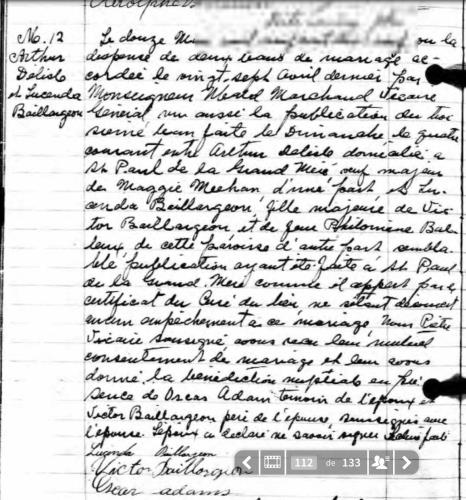 No. 12
Arthur
Délisle
et Lucenda
Baillargeon
Le douze vu la
dispense de deux bans de mariage ac-
cordée le vingt sept Avril dernier par
Monseigneur Marchand Vicaire
Général vu aussi la publication du troi
sième ban faite le Dimanche le quatre
courant entre Arthur Delisle domicilié à
St Paul de la Grand Mère, veuf majeur
de Maggie Meehan d'une part et Lu-
cenda Baillargeon, fille majeure de Vic-
tor Baillargeon et de feue Philomène
de cette paroisse d'autre part sembla-
ble publication ayant été faite à St Paul
de la Grand. Mère comme il appert par le
certificat du Curé du lieu, ne s'étant découvert
aucun empêchement à ce mariage, Nous Prêtre
Vicaire soussigné avons reçu leur mutuel
consentement de mariage et leur avons
donné la bénédiction nuptiale en pré
sence de Oscar Adam témoin de l'époux et
Victor Baillargeon père de l'épouse, soussignés avec
l'épouse. L'époux a déclaré ne savoir signer. Lecture faite
Lucinda Baillargeon
Victor Baillargeon
Oscar adams
112 de 133